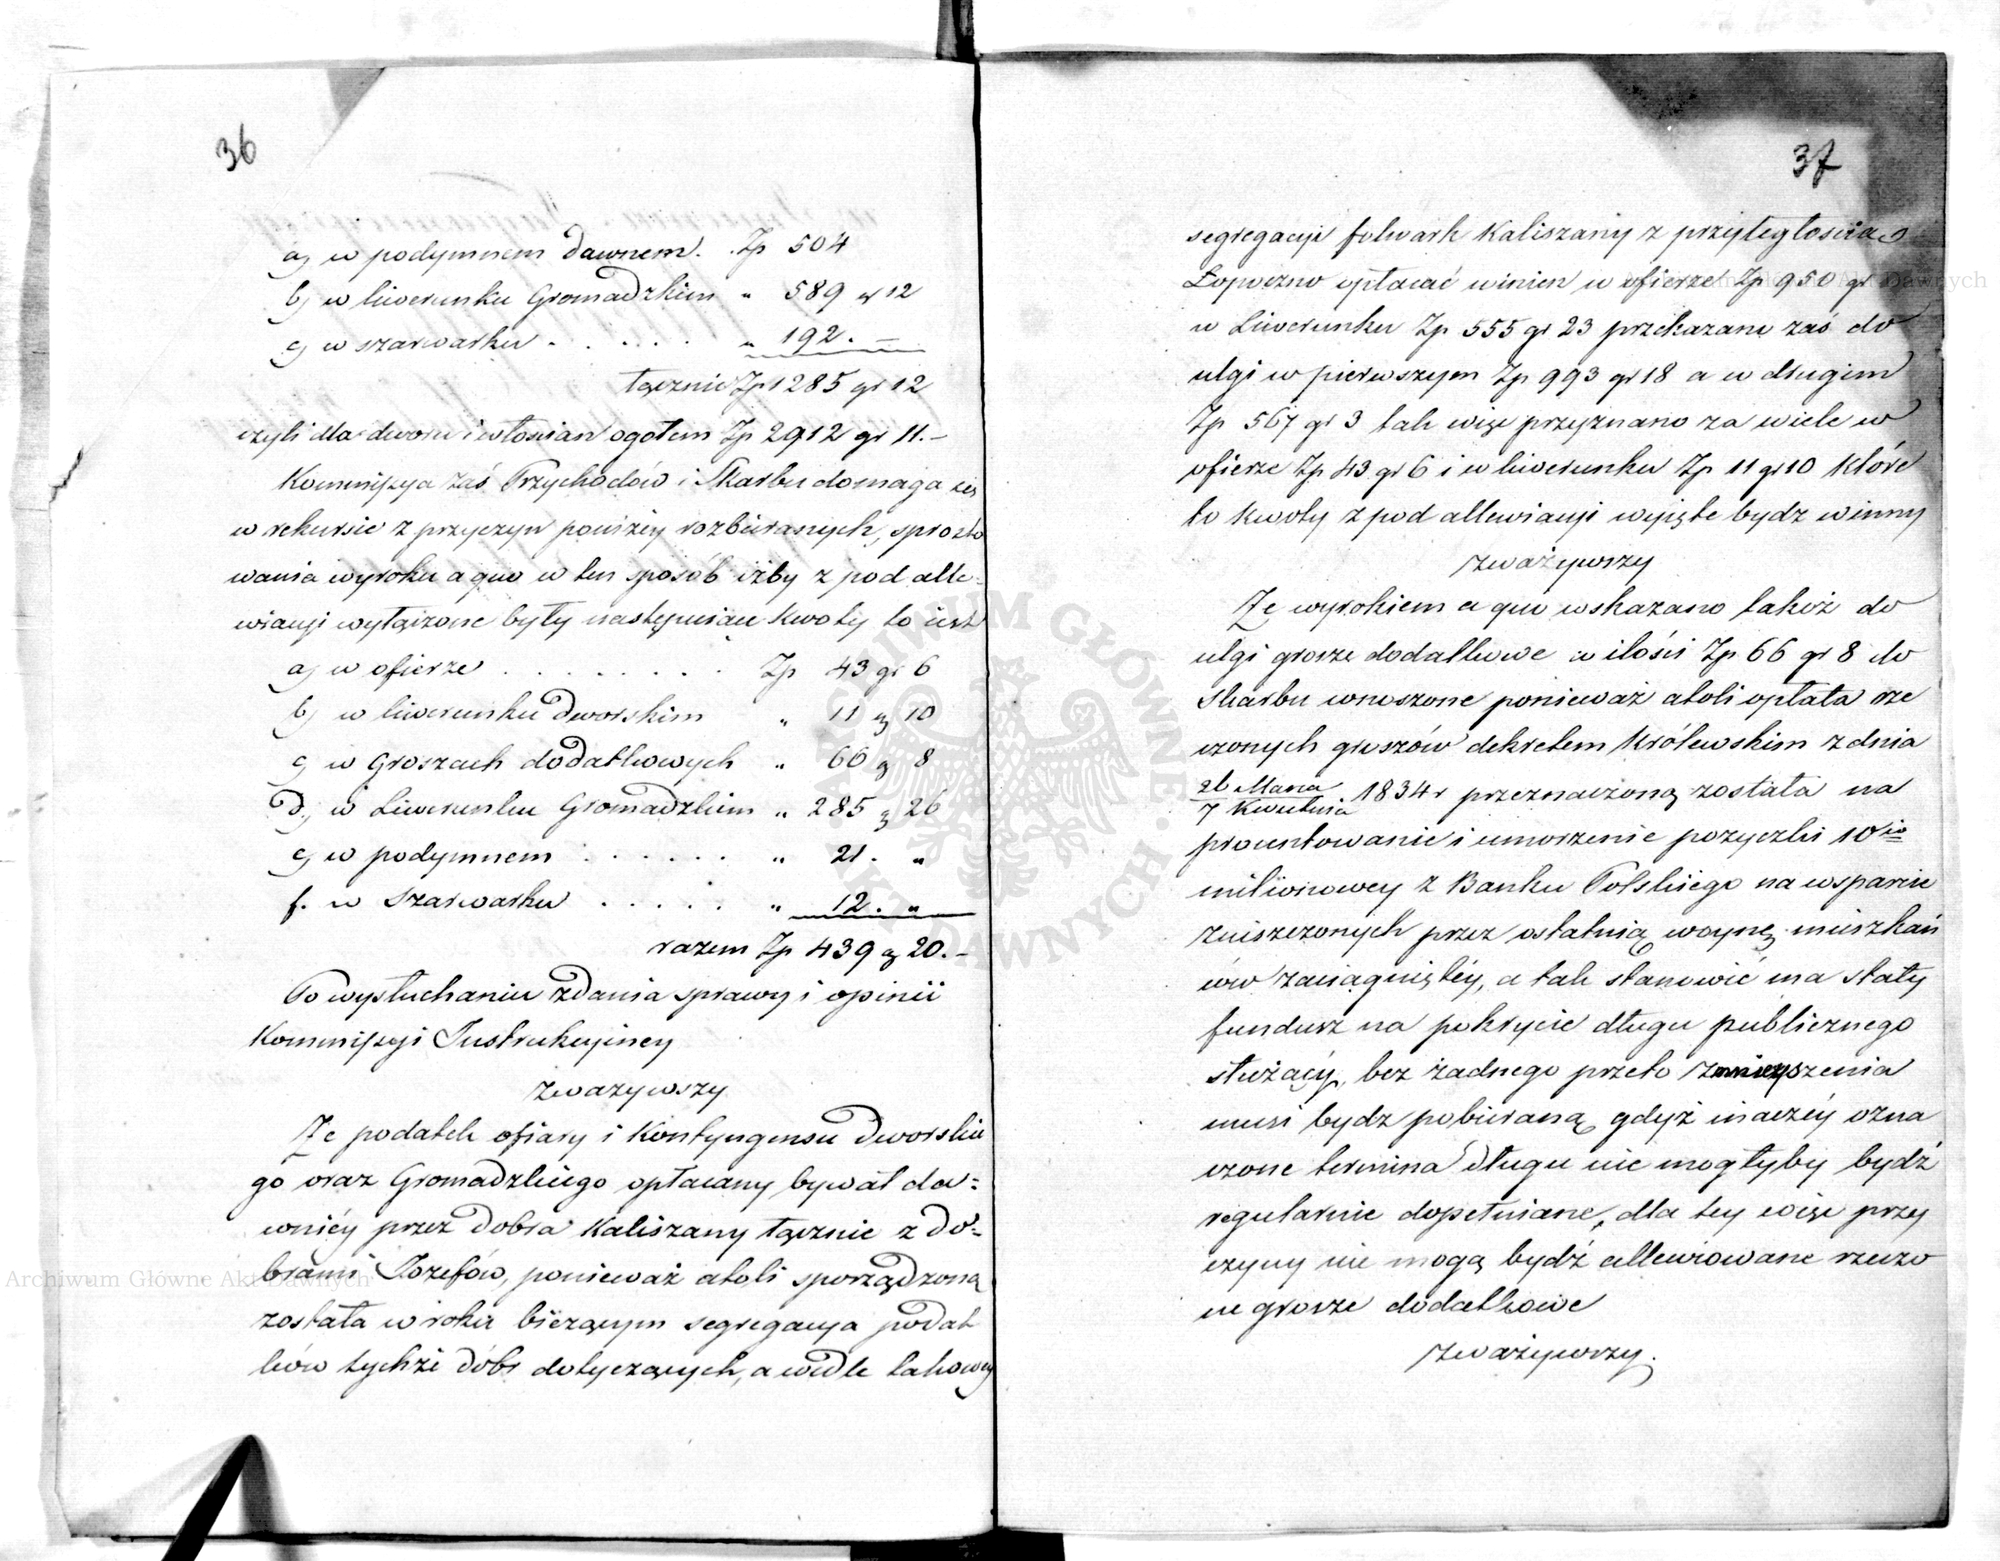 36
a) w podymnem dawnem . . Zp 504
b) w liwerunku Gromadzkim „ 589 gr 12
c) w szarwarku . . . . . „ 192. —
łącznie Zp 1285 gr 12
czyli dla dworu i włościan ogółem Zp 2912 gr 11.–
Kommissya zaś Przychodów i Skarbu domaga się
w rekursie z przyczyn poniżey rozbieranych, sprosto
wania wyroku a quo w ten sposób iżby z pod alle-
wiacyi wyłączone były następuiące kwoty to iest
a) w ofierze . . . . . . . . Zp 43 gr 6
b) w liwerunku dworskim „ 11 g 10
c) w Groszach dodatkowych „ 66 g 8
d) w Liwerunku Gromadzkim „ 285 g 26
e) w podymnem . . . . . . „ 21. „
f. w Szarwarku . . . . . „ 12. „
razem Zp 439 g 20.–
Po wysłuchaniu zdania sprawy i opinii
Kommissyi Instrukcyiney
zważywszy
Że podatek ofiary i Kontyngensu dworskie
go oraz Gromadzkiego opłacany bywał da-
wniéy przez dobra Kaliszany łącznie z do-
brami Jozefów, ponieważ atoli sporządzoną
została w roku bieżącym segregacya podat
ków tychże dóbr dotyczących, a wedle takowey
37
segregacyi folwark Kaliszany z przyległościa
Łopoczno opłacać winien w ofierze Zp 950 gr
w Liwerunku Zp 555 gr 23 przekazano zaś do
ulgi w pierwszym Zp 993 gr 18 a w drugim
Zp 567 gr 3 tak więc przyznano za wiele w
ofierze Zp 43 gr 6 i w liwerunku Zp 11 gr 10 które
to kwoty z pod allewiacyi wyięte bydz winny
zważywszy
Że wyrokiem a quo wskazano takoż do
ulgi grosze dodatkowe w ilości Zp 66 gr 8 do
Skarbu wnoszone ponieważ atoli opłata rze
czonych groszów dekretem Królewskim z dnia
26 Marca
7 Kwietnia 1834 r przeznaczoną została na
procentowanie i umorzenie pożyczki 10io
milionowey z Banku Polskiego na wsparcie
zniszczonych przez ostatnią woynę mieszkań
ców zaciągniętéy, a tak stanowić ma stały
fundusz na pokrycie długu publicznego
służący, bez żadnego przeto zmnieyszenia
musi bydz pobieraną gdyż inaczéy ozna
czone termina długu nie mogłyby bydź
regularnie dopełniane, dla tey więc przy
czyny nie mogą bydź allewiowane rzeczo
ne grosze dodatkowe
zważywszy.
Archiwum Główne Akt Dawnych
ARCHIWUM GŁÓWNE AKT DAWNYCH